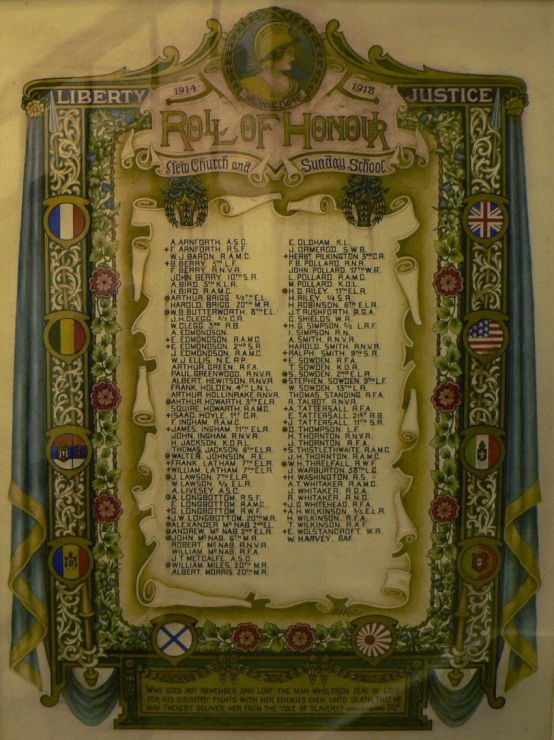 1914
1918
LIBERTY
JUSTICE
ROLL OF HONOUR
New Church and Sunday School
A. ARNFORTH. A.S.C.
+F. ARNFORTH. R.S.F.
W.J. BARON. R.A.M.C.
+B. BERRY. 5TH L.F.
F. BERRY. R.N.V.R.
JOHN BERRY. 10TH S.R.
A. BIRD. 3RD K.L.R.
H. BIRD. R.A.M.C.
ARTHUR BRIGG. 2/7TH E.L.
HAROLD BRIGG. 20TH M.R.
W.B. BUTTERWORTH. 8TH E.L.
J.H. CLEGG. C.R.
W. CLEGG. 3RD R.B.
A. EDMONDSON.
+E. EDMONDSON. R.A.M.C.
E. EDMONDSON. 2ND S.R.
J. EDMONDSON. R.A.M.C.
W.J. ELLIS. N.E.R.P.
ARTHUR GREEN. R.F.A.
PAUL GREENWOOD. R.N.V.R.
ALBERT. HEWITSON. R.N.V.R.
FRANK. HOLDEN. 4TH L.N.L.
ARTHUR. HOLLINRAKE. R.N.V.R.
ARTHUR HOWARTH. 3RD E.L.R.
SQUIRE. HOWARTH. R.A.M.C.
+ISAAC. HOYLE. 1ST C.R.
F. INGHAM. R.A.M.C.
+JAMES. INGHAM. 11TH E.L.R.
JOHN. INGHAM. R.N.V.R.
H. JACKSON. K.O.R.L.
THOMAS. JACKSON. 6TH E.L.R.
WALTER. JOHNSON. R.E.
+FRANK. LATHAM. 7TH E.L.R.
+WILLIAM. LATHAM. 7TH E.L.R.
J. LAWSON. 7TH E.L.R.
W. LAWSON. E.L.R.
A. LIVESEY. A.S.C.
A. LONGBOTTOM. R.S.F.
F. LONGBOTTOM. R.A.M.C.
+G. LONGBOTTOM. R.W.F.
+J.W. LONGBOTTOM. 20TH M.R.
ALEXANDER McNAB. 2ND E.L.
ANDREW. McNAB. 2ND E.L.R.
JOHN. McNAB. 6TH M.R.
ROBERT. McNAB. R.N.V.R.
WILLIAM. McNAB. R.F.A.
J.T. METCALFE. A.S.C.
WILLIAM. MILES. 20TH M.R.
ALBERT. MORRIS. 20TH M.R.
E. OLDHAM. K.L.
J. ORMEROD. S.W.B.
+HERBT. PILKINGTON. 3RD C.R.
F.B. POLLARD. R.N.R.
JOHN. POLLARD. 17TH W.R.
L. POLLARD. R.A.M.C.
M. POLLARD. K.O.L.
H.D. RILEY. 11TH E.L.R.
H. RILEY. S.R.
H. ROBINSON. 6TH E.L.R.
J.T. RUSHFORTH. R.G.A.
C. SHIELDS. W.R.
+H.G. SIMPSON. L.R.F.
F. SIMPSON. R.N.
A. SMITH. R.N.V.R.
HAROLD. SMITH. R.N.V.R.
+RALPH. SMITH. 9TH S.R.
+E. SOWDEN. R.F.A.
T. SOWDEN. K.O.R.
S. SOWDEN. 2ND E.L.R.
STEPHEN. SOWDEN. 9TH L.F.
W. SOWDEN. 13TH L.F.
THOMAS. STANDING. R.F.A.
R. TALBOT. R.N.V.R.
+A. TATTERSALL. R.F.A.
E. TATTERSALL. 21ST R.B.
+J. TATTERSALL. 11TH S.R.
D. THOMPSON. L.F.
H. THORNTON. R.N.V.R.
J. THORNTON. R.F.A.
+S. THISTLETHWAITE. R.A.M.C.
J.H. THORNTON. R.A.M.C.
W.H. THRELFALL. R.W.F.
J. WARBURTON. 38TH L.C.
+H. WASHINGTON. R.S.
A.T. WHITAKER. R.A.M.C.
J. WHITAKER. R.G.A.
R. WHITAKER. R.N.D.
+J.G. WHITEHEAD. R.F.A.
+A.H. WILKINSON. E.L.R.
H. WILKINSON. R.F.A.
T. WILKINSON. R.A.F.
+E. WOLSTANCROFT. W.R.
W. HARVEY. R.A.F.
WHO DOES NOT REMEMBER AND LOVE THE MAN WHO, FROM ZEAL OF LOVE
FOR HIS COUNTRY FIGHTS WITH HER ENEMIES EVEN UNTO DEATH, THAT HE
MAY THEREBY DELIVER HER FROM THE YOKE OF SLAVERY?